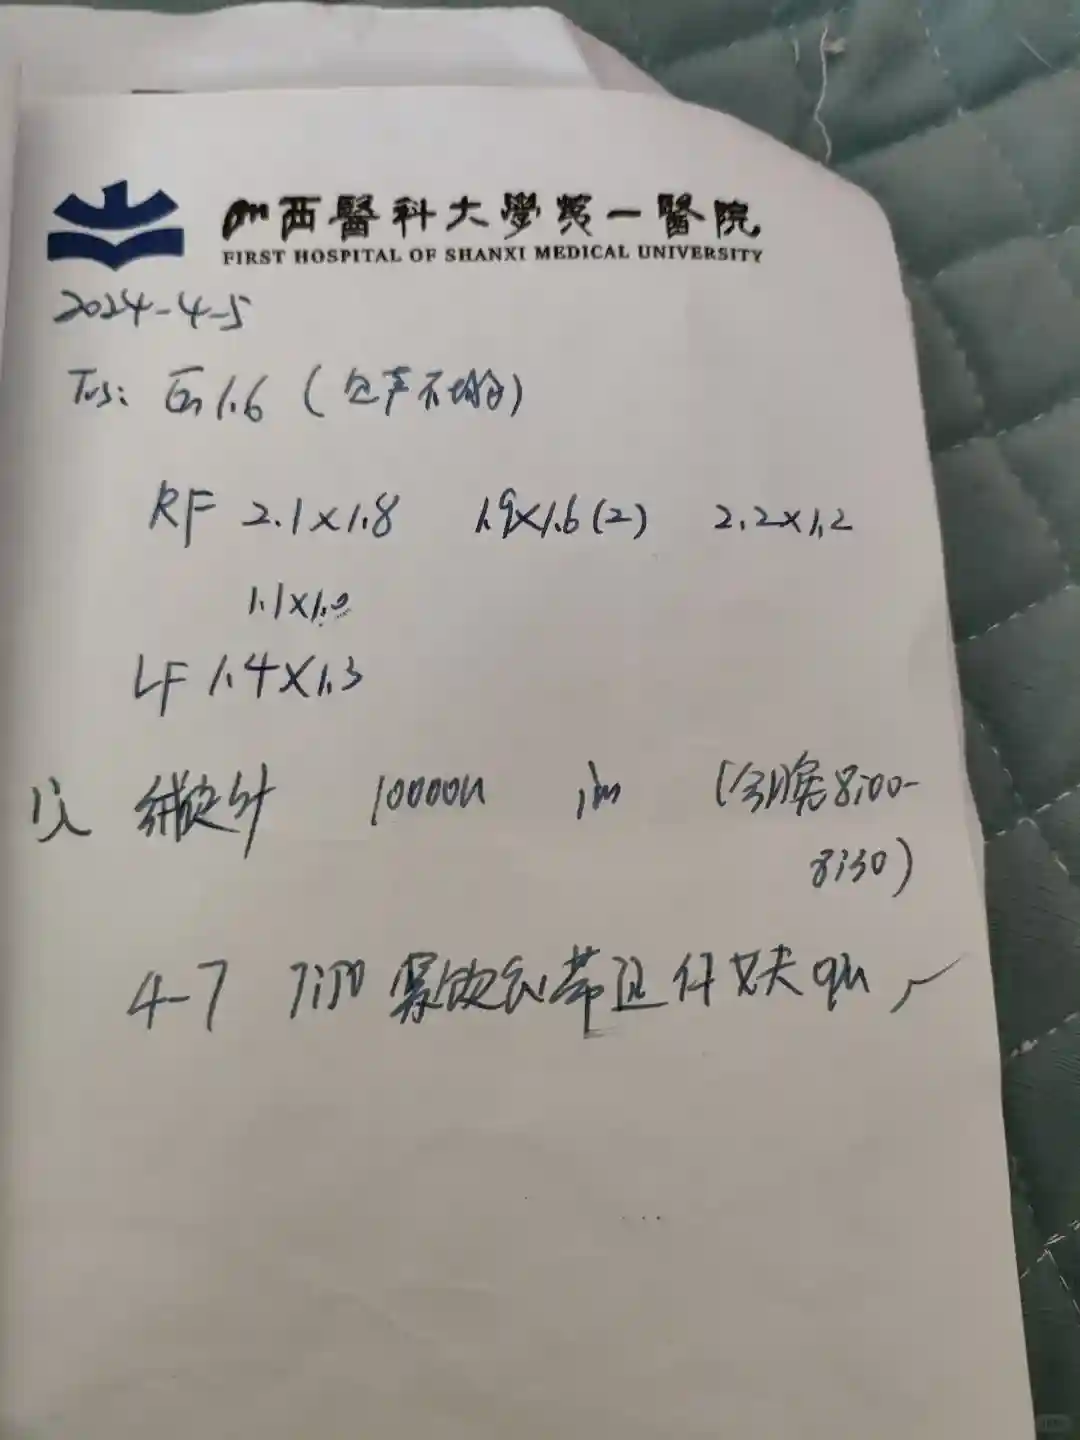 山西醫科大學第一醫院
FIRST HOSPITAL OF SHANXI MEDICAL UNIVERSITY
2024-4-5
TVS: En 1.6 (回声不均匀)
RF 2.1×1.8 1.9×1.6(2) 2.2×1.2
1.1×1.0
LF 1.4×1.3
绒促针 10000u im (今晚8:00-
8:30)
4-7 7:50 禁饮 带 丈夫